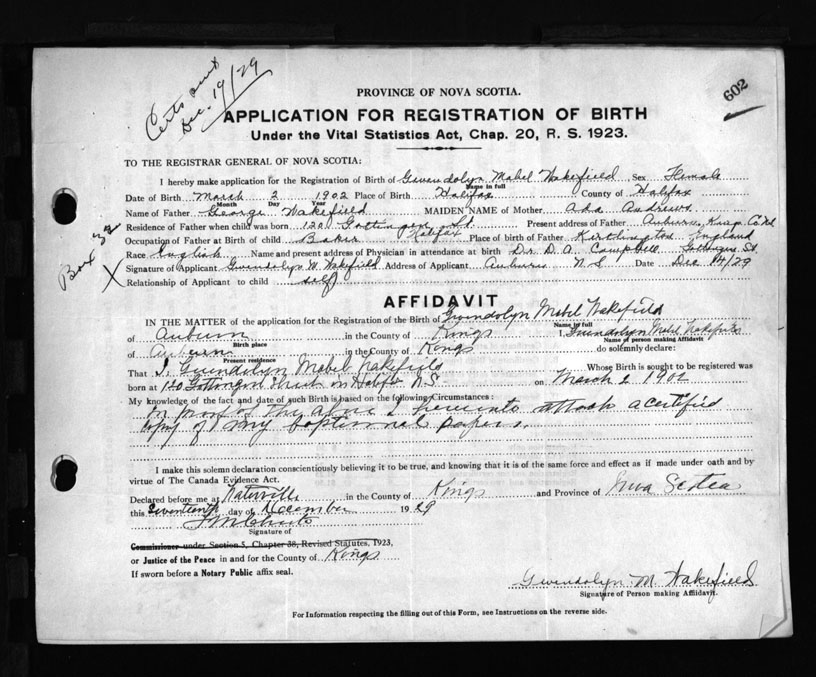 Certs sent
Dec. 19/29
602
PROVINCE OF NOVA SCOTIA.
APPLICATION FOR REGISTRATION OF BIRTH
Under the Vital Statistics Act, Chap. 20, R. S. 1923.
TO THE REGISTRAR GENERAL OF NOVA SCOTIA:
I hereby make application for the Registration of Birth of Gwendolyn Mabel Wakefield Sex Female
Name in full
Date of Birth March 2 1902 Place of Birth Halifax County of Halifax
Month Day Year
Name of Father George Wakefield MAIDEN NAME of Mother Ada Andrews
Residence of Father when child was born 120 Gottingen St. Halifax Present address of Father Auburn, Kings Co. N.S.
Occupation of Father at Birth of child Baker Place of birth of Father Kirtlington England
Race English Name and present address of Physician in attendance at birth Dr. D. A. Campbell Gottingen St
Signature of Applicant Gwendolyn M. Wakefield Address of Applicant Auburn N S Date Dec 14/29
Relationship of Applicant to child self
Box 32
X
AFFIDAVIT
IN THE MATTER of the application for the Registration of the Birth of Gwendolyn Mabel Wakefield
Name in full
of Auburn in the County of Kings I, Gwendolyn Mabel Wakefield
Birth place Name of person making Affidavit
of Auburn in the County of Kings do solemnly declare:
Present residence
That I, Gwendolyn Mabel Wakefield Whose Birth is sought to be registered was
born at 120 Gottingen Street in Halifax N.S. on March 2 1902
My knowledge of the fact and date of such Birth is based on the following Circumstances:
In proof of the above I hereunto attach a certified
copy of my baptismal papers.
I make this solemn declaration conscientiously believing it to be true, and knowing that it is of the same force and effect as if made under oath and by
virtue of The Canada Evidence Act.
Declared before me at Waterville in the County of Kings and Province of Nova Scotia
this Seventeenth day of December 1929
Signature of
Commissioner under Section 5, Chapter 38, Revised Statutes, 1923,
or Justice of the Peace in and for the County of Kings
If sworn before a Notary Public affix seal.
Gwendolyn M. Wakefield
Signature of Person making Affidavit.
For Information respecting the filling out of this Form, see Instructions on the reverse side.